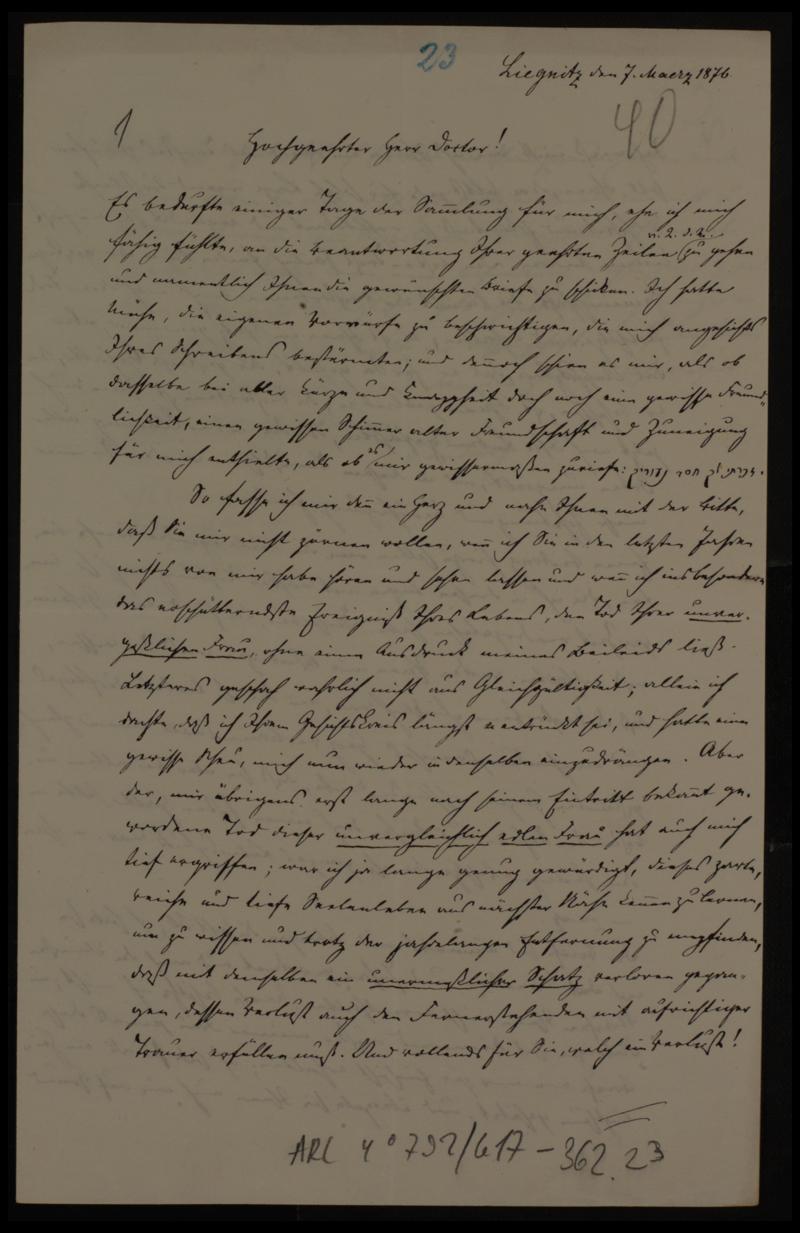 23
Liegnitz den 7. Maerz 1876.
1
40
Hochgeehrter Herr Doctor!
Es bedurfte einiger Tage der Sam̄lung für mich, ehe ich mich
fähig fühlte, an die Beantwortung Ihrer geehrten Zeilen zu gehen
und namentlich Ihnen die gewünschten Briefe zu schicken. Ich hatte
Mühe, die eigenen Vorwürfe zu beschwichtigen, die mich angesichts
Ihres Schreibens bestürmten; und dennoch schien es mir, als ob
dasselbe bei aller Kürze und Knappheit doch noch eine gewisse Freund-
lichkeit, einen gewissen Schim̄er alter Freundschaft und Zuneigung
für mich enthielte, als ob es mir gewissermaßen zuriefe: זכרתי לך חסד נעוריך.
So fasse ich mir den ein Herz und nahe Ihnen mit der Bitte,
daß Sie mir nicht zürnen wollen, wen̄ ich Sie in den letzten Jahren
nichts von mir habe hören und sehen lassen und wen̄ ich insbesondere
das erschütterndste Ereigniß Ihres Lebens, den Tod Ihrer unver-
geßlichen Frau, ohne einen Ausdruck meines Beileids ließ.
Letzteres geschah wahrlich nicht aus Gleichgültigkeit; allein ich
dachte, daß ich Ihrem Gesichtskreis längst entrückt sei, und hatte eine
gewisse Scheu, mich nun wieder in denselben einzudrängen. Aber
der, mir übrigens erst lange nach seinem Eintritt bekan̄t ge-
wordene Tod dieser unvergleichlich edlen Frau hat auch mich
tief ergriffen; war ich ja lange genug gewürdigt, dieses zarte,
reiche und tiefe Seelenleben aus nächster Nähe kennen zu lernen,
um zu wissen und trotz der jahrelangen Entfernung zu empfinden,
daß mit demselben ein unermeßlicher Schatz verloren gegan-
gen, dessen Verlust auch den Fernerstehenden mit aufrichtiger
Trauer erfüllen muß. Und vollends für Sie, welch ein Verlust!
ARC 4° 792/G17-362.23